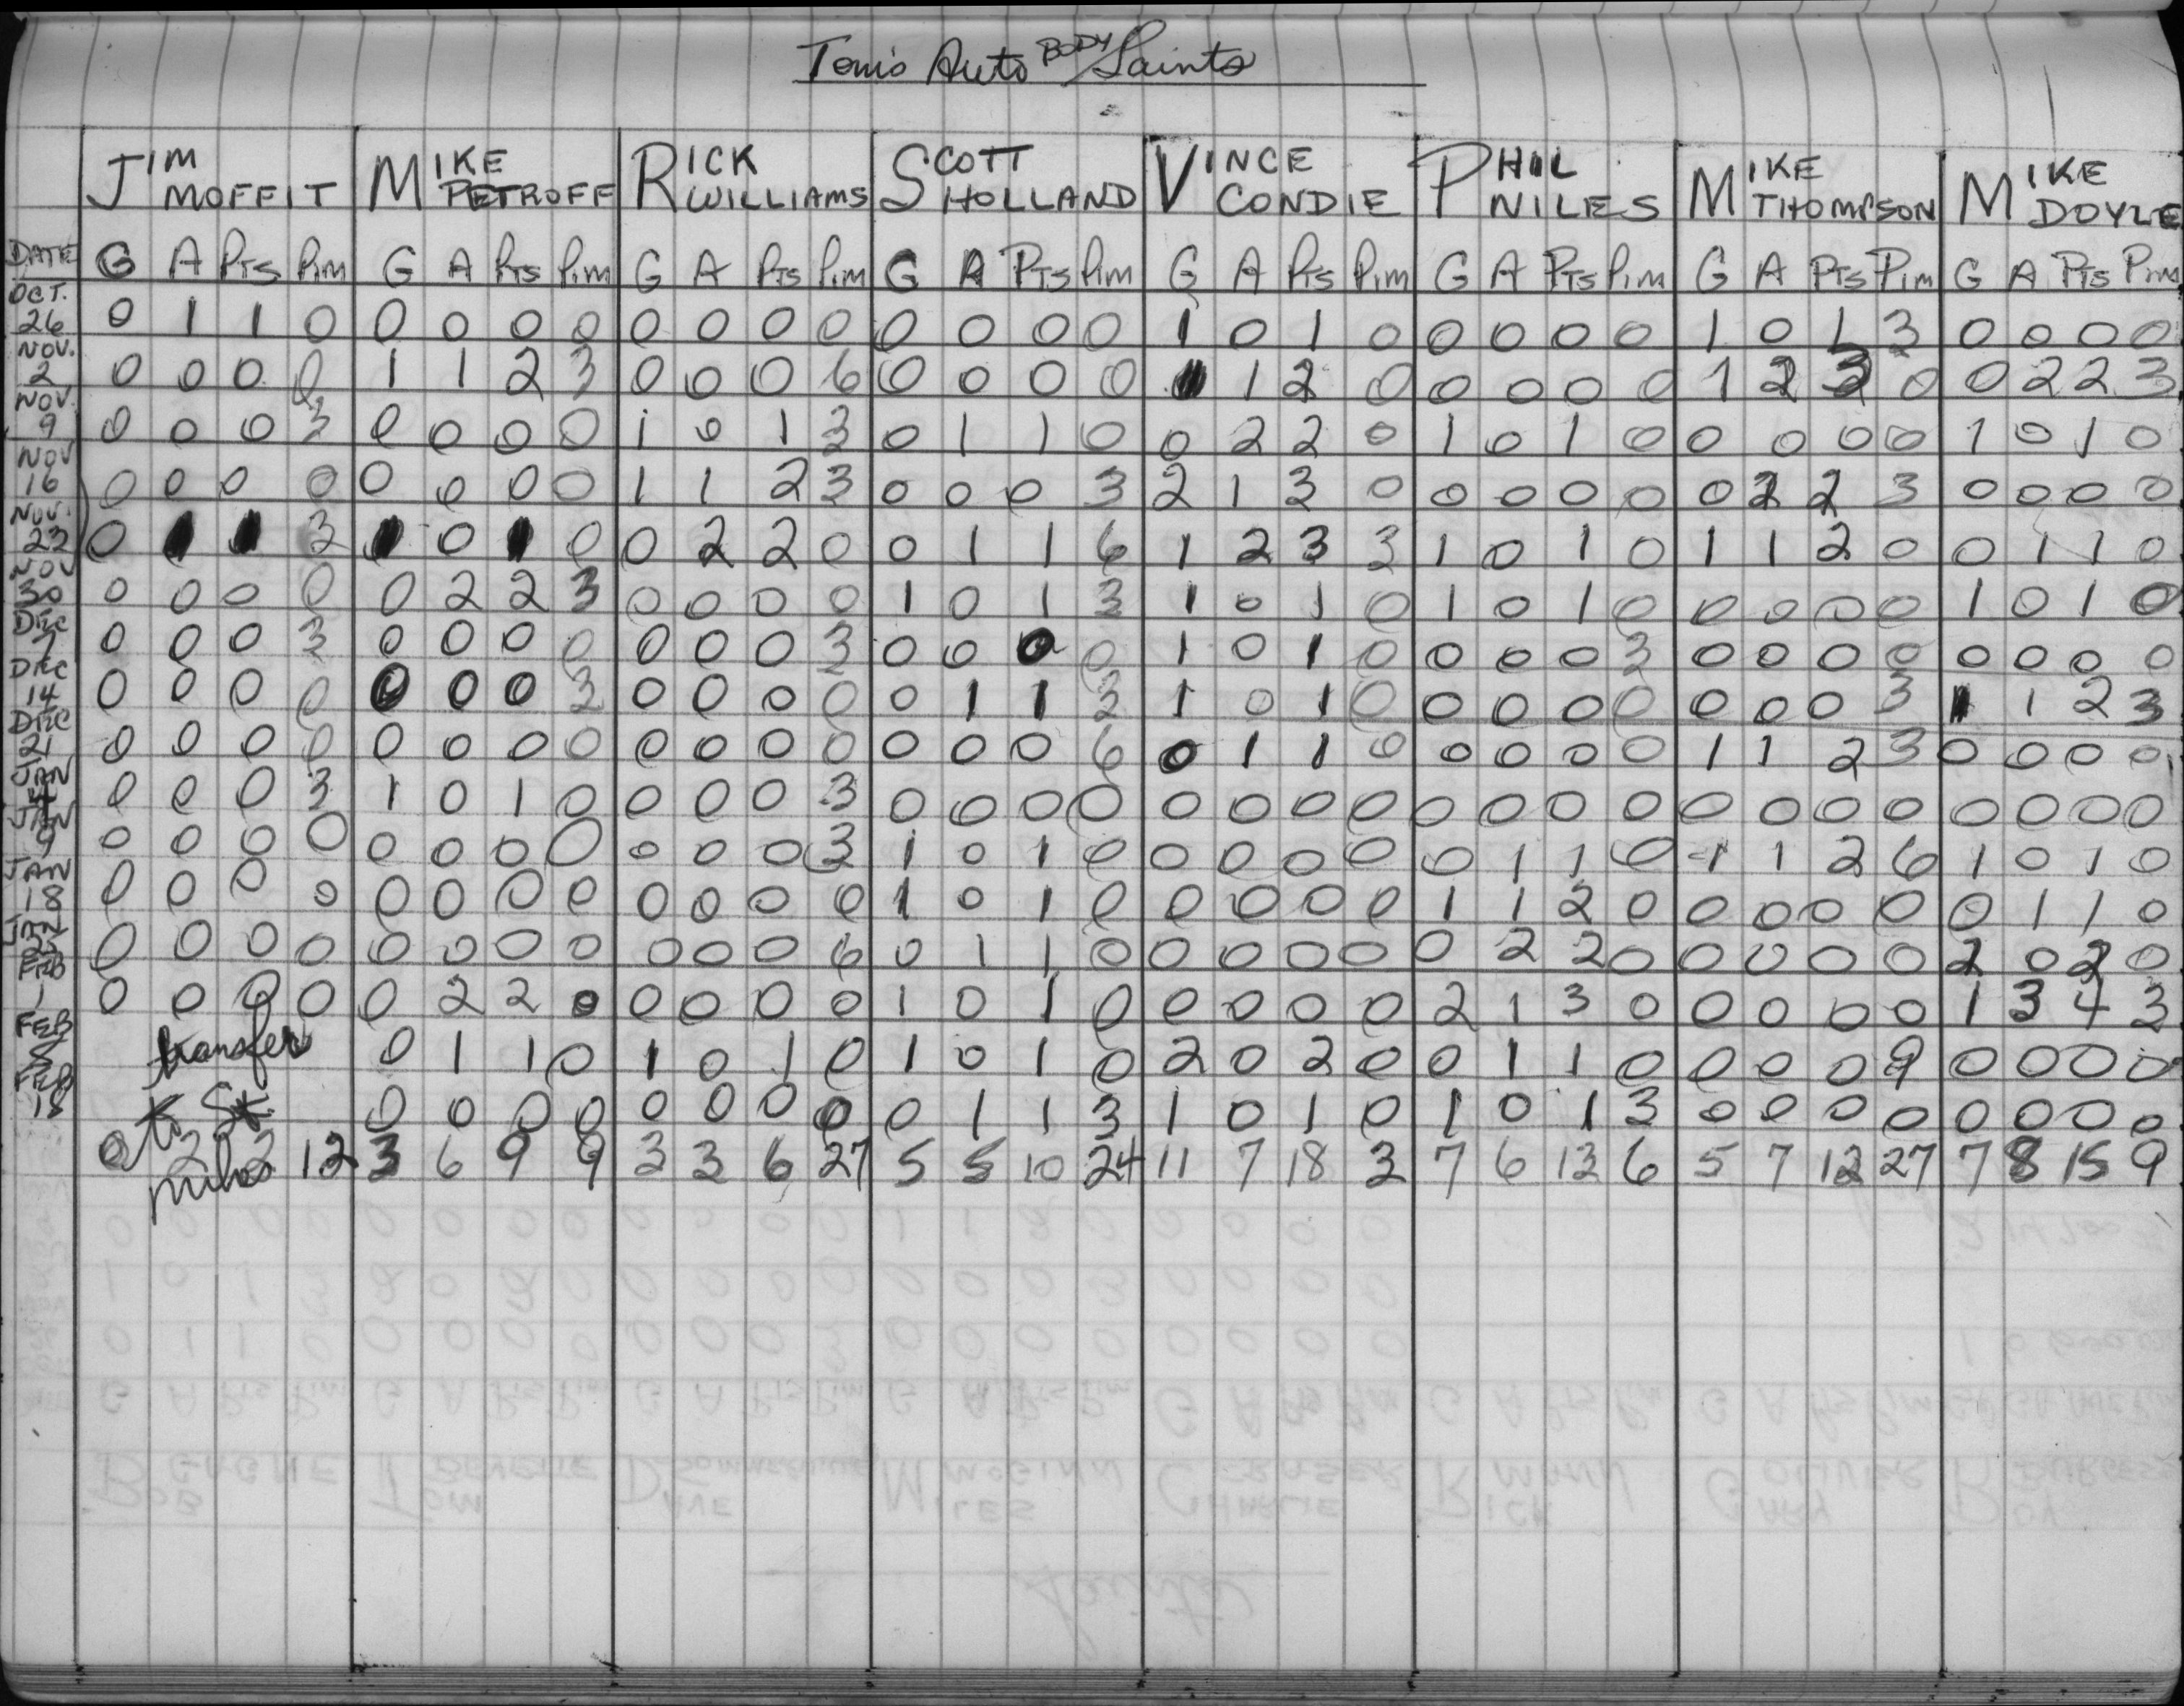 Tom's Auto BODY Saints
JIM MOFFIT MIKE PETROFF RICK WILLIAMS SCOTT HOLLAND VINCE CONDIE PHIL NILES MIKE THOMPSON MIKE DOYLE
DATE G A Pts Pim G A Pts Pim G A Pts Pim G A Pts Pim G A Pts Pim G A Pts Pim G A Pts Pim G A Pts Pim
OCT. 26 0 1 1 0 0 0 0 0 0 0 0 0 0 0 0 0 1 0 1 0 0 0 0 0 1 0 1 3 0 0 0 0
NOV. 2 0 0 0 0 1 1 2 3 0 0 0 6 0 0 0 0 1 1 2 0 0 0 0 0 1 2 3 0 0 2 2 3
NOV. 9 0 0 0 3 0 0 0 0 1 0 1 3 0 1 1 0 0 2 2 0 1 0 1 0 0 0 0 0 1 0 1 0
NOV 16 0 0 0 0 0 0 0 0 1 1 2 3 0 0 0 3 2 1 3 0 0 0 0 0 0 2 2 3 0 0 0 0
NOV. 23 0 1 1 3 1 0 1 0 0 2 2 0 0 1 1 6 1 2 3 3 1 0 1 0 1 1 2 0 0 1 1 0
NOV 30 0 0 0 0 0 2 2 3 0 0 0 0 1 0 1 3 1 0 1 0 1 0 1 0 0 0 0 0 1 0 1 0
DEC 7 0 0 0 3 0 0 0 0 0 0 0 3 0 0 0 0 1 0 1 0 0 0 0 3 0 0 0 0 0 0 0 0
DEC 14 0 0 0 0 0 0 0 3 0 0 0 0 0 1 1 3 1 0 1 0 0 0 0 0 0 0 0 3 1 1 2 3
DEC 21 0 0 0 0 0 0 0 0 0 0 0 0 0 0 0 6 0 1 1 0 0 0 0 0 1 1 2 3 0 0 0 0
JAN 4 0 0 0 3 1 0 1 0 0 0 0 3 0 0 0 0 0 0 0 0 0 0 0 0 0 0 0 0 0 0 0 0
JAN 9 0 0 0 0 0 0 0 0 0 0 0 3 1 0 1 0 0 0 0 0 0 1 1 0 1 1 2 6 1 0 1 0
JAN 18 0 0 0 0 0 0 0 0 0 0 0 0 1 0 1 0 0 0 0 0 1 1 2 0 0 0 0 0 0 1 1 0
JAN 0 0 0 0 0 0 0 0 0 0 0 6 0 1 1 0 0 0 0 0 0 2 2 0 0 0 0 0 2 0 2 0
FEB 1 0 0 0 0 0 2 2 0 0 0 0 0 1 0 1 0 0 0 0 0 2 1 3 0 0 0 0 0 1 3 4 3
FEB 8 transfer 0 1 1 0 1 0 1 0 1 0 1 0 2 0 2 0 0 1 1 0 0 0 0 9 0 0 0 0
FEB 15 to St. 0 0 0 0 0 0 0 0 0 1 1 3 1 0 1 0 1 0 1 3 0 0 0 0 0 0 0 0
0 2 2 12 3 6 9 9 3 3 6 27 5 5 10 24 11 7 18 3 7 6 13 6 5 7 12 27 7 8 15 9
mikes